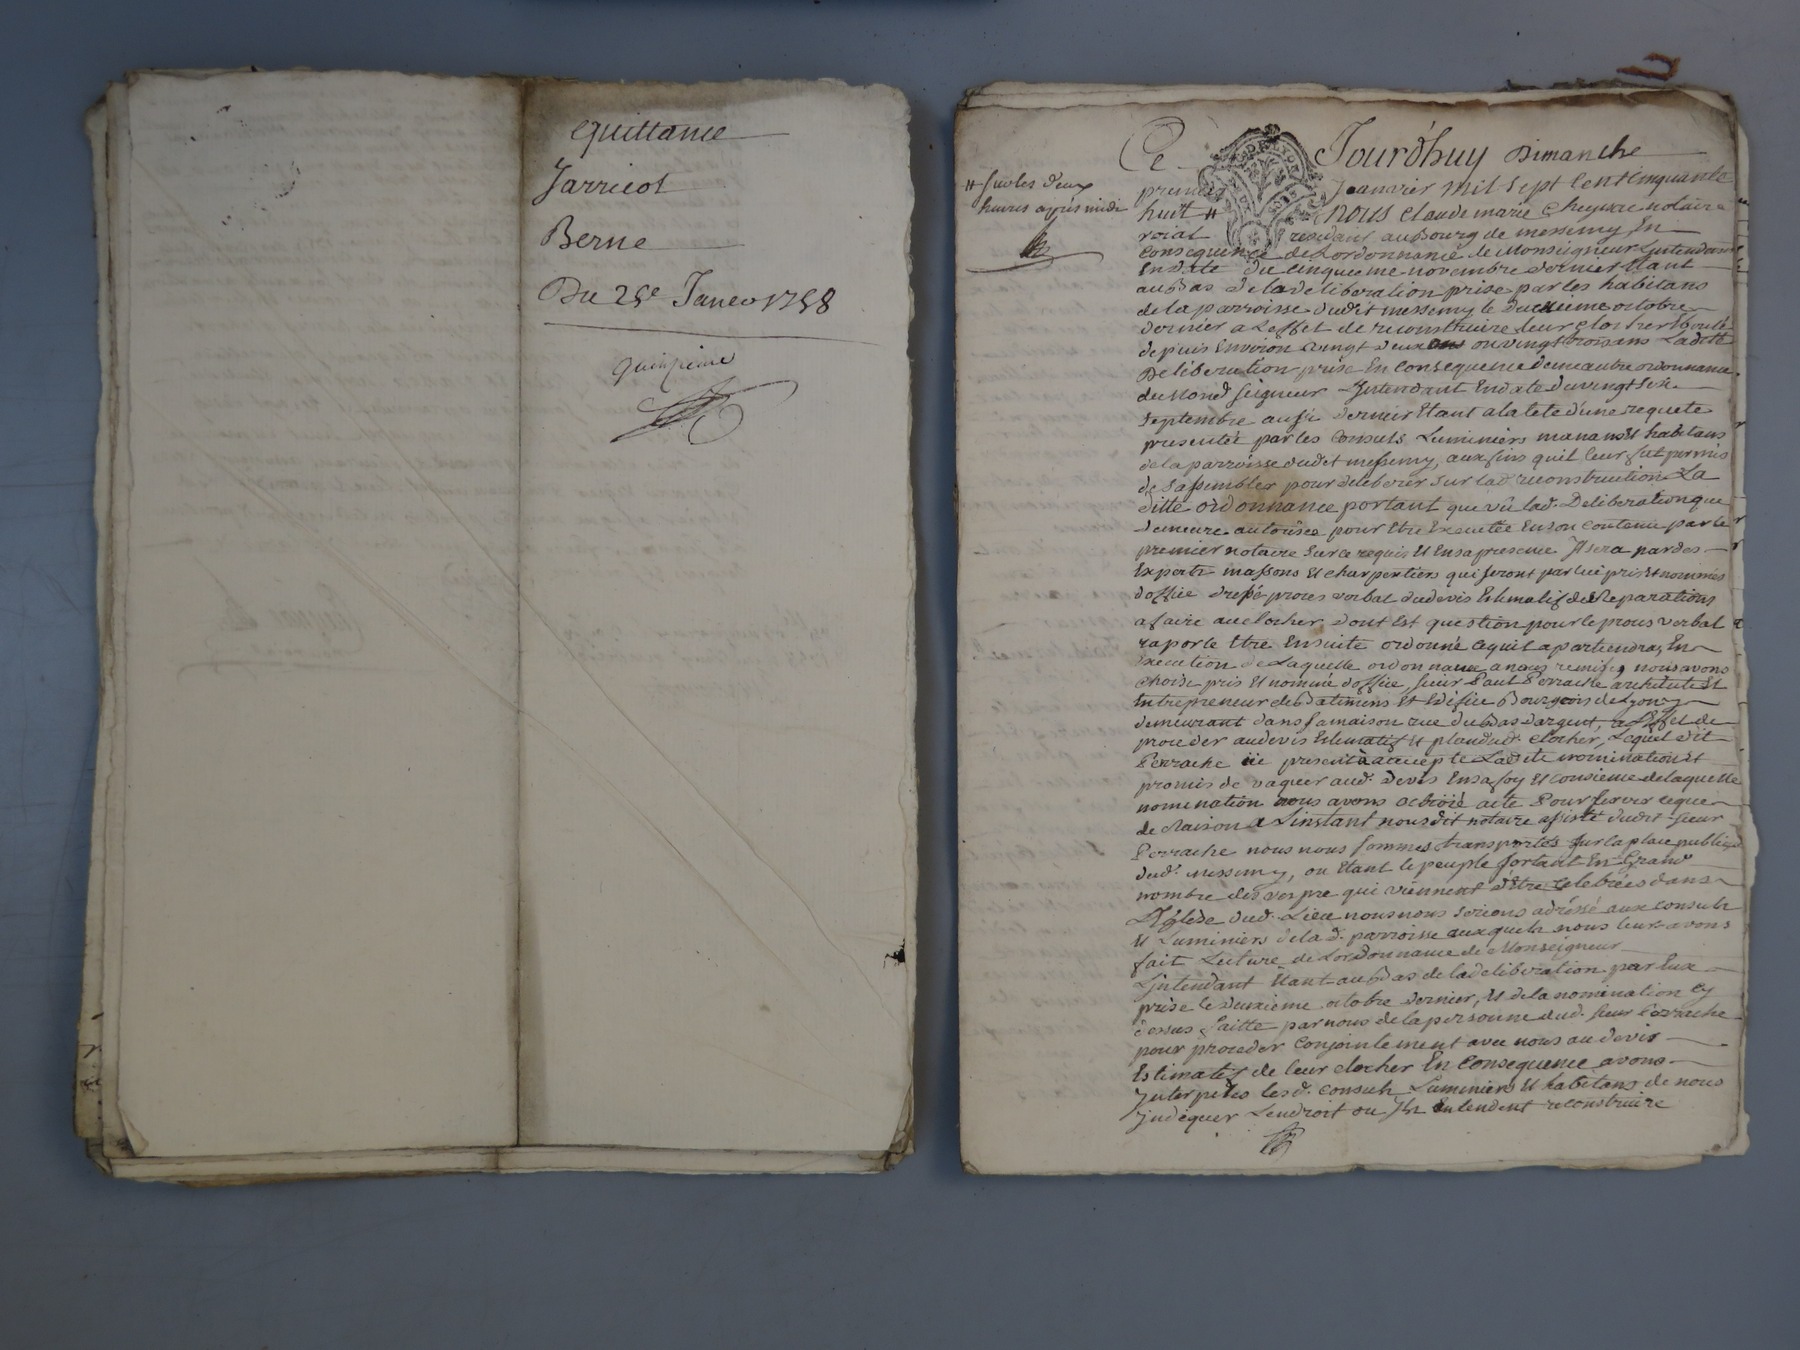 Quittance
Jarricot
Berne
Du 25e Janvr 1758
quinzieme
Ce Jourdhuy Dimanche
premier Jeanvier mil sept Cent Cinquante
# sur les deux
heures aprés midi
huit # nous Claude marie Cheyvre notaire
roial residant au Bourg de messemy En
Consequence de Lordonnance de Monseigneur Lintendant
En date du Cinquieme novembre dernier Etant
au Bas de la deliberation prise par les habitans
de la parroisse dudit messemy le Duexieme octobre
dernier a Leffet de reconstruire leur Clocher Eboulé
depuis Environ vingt deux ou vingt trois ans Ladite
Deliberation prise En Consequence dune autre ordonnance
de Mond Seigneur Jntendant En date du vingt six
septembre aussi dernier Etant a la tete d'une requete
presentée par les Consuls Luminiers manans Et habitans
de la parroisse dudit messemy, aux fins quil leur fut permis
de s'assembler pour deliberer sur lad. reconstruction La
ditte ordonnance portant que vû lad. Deliberation que
demeure autorisée pour Etre Executée En son Contenu par le
premier notaire sur ce requis Et En sa presence Jl sera par des
Experts massons Et Charpentiers qui seront par lui pris Et nommés
d'office dressé proces verbal du devis Estimatif des Reparations
a faire au Clocher dont Est question pour le proces verbal
raporté Etre Ensuite ordonné ce quil apartiendra, En
Execution de Laquelle ordonnance a nous remise, nous avons
Choisi pris Et nommé d'office sieur Paul Perrache architecte Et
Entrepreneur des Batimens Et Edifice Bourgois de Lyon y
demeurant dans sa maison rue du Bas dargent, a Leffet de
proceder au devis Estimatif Et plan dud. clocher, Lequel dit
Perrache ici present a accepté Ladite nomination Et
promis de vaquer aud. devis En sa foy Et Consience de laquelle
nomination nous avons octroié acte Pour servir ce que
de Raison a Linstant nous dit notaire assisté dudit sieur
Perrache nous nous sommes transportés sur la place publique
dud. Messemy, ou Etant le peuple sortant En Grand
nombre des vespre qui viennent d'Etre Celebrées dans
L'Eglise dud. Lieu nous nous serions adréssé aux consuls
Et Luminiers de lad. parroisse auxquels nous leur avons
fait Lecture de Lordonnance de Monseigneur
Lintendant Etant au Bas de la deliberation par Eux
prise le deuxieme octobre dernier, Et de la nomination Cy
dessus faitte par nous de la personne dud. sieur Perrache
pour proceder Conjointement avec nous au devis
Estimatif de leur clocher En Consequence avons
Jnterpelés lesd. Consuls Luminiers Et habitans de nous
Jndiquer Lendroit ou Jls Entendent reconstruire